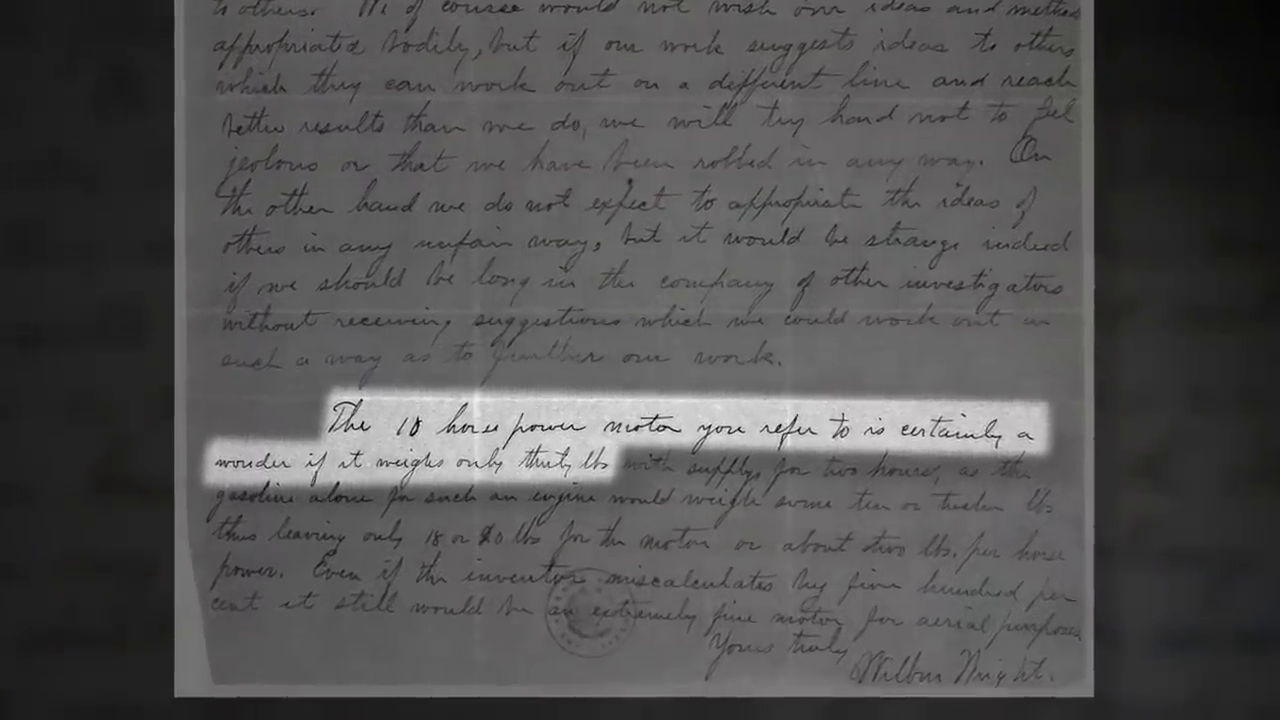 to others. We of course would not wish our ideas and methods
appropriated bodily, but if our work suggests ideas to others
which they can work out on a different line and reach
better results than we do, we will try hard not to feel
jealous or that we have been robbed in any way. On
the other hand we do not expect to appropriate the ideas of
others in any unfair way, but it would be strange indeed
if we should be long in the company of other investigators
without receiving suggestions which we could work out in
such a way as to further our work.
The 10 horse power motor you refer to is certainly a
wonder if it weighs only thirty lbs with supply for two hours, as the
gasoline alone for such an engine would weigh some ten or twelve lbs
thus leaving only 18 or 20 lbs for the motor or about two lbs. per horse
power. Even if the inventor miscalculates by five hundred per
cent it still would be an extremely fine motor for aerial purposes.
Yours truly
Wilbur Wright.